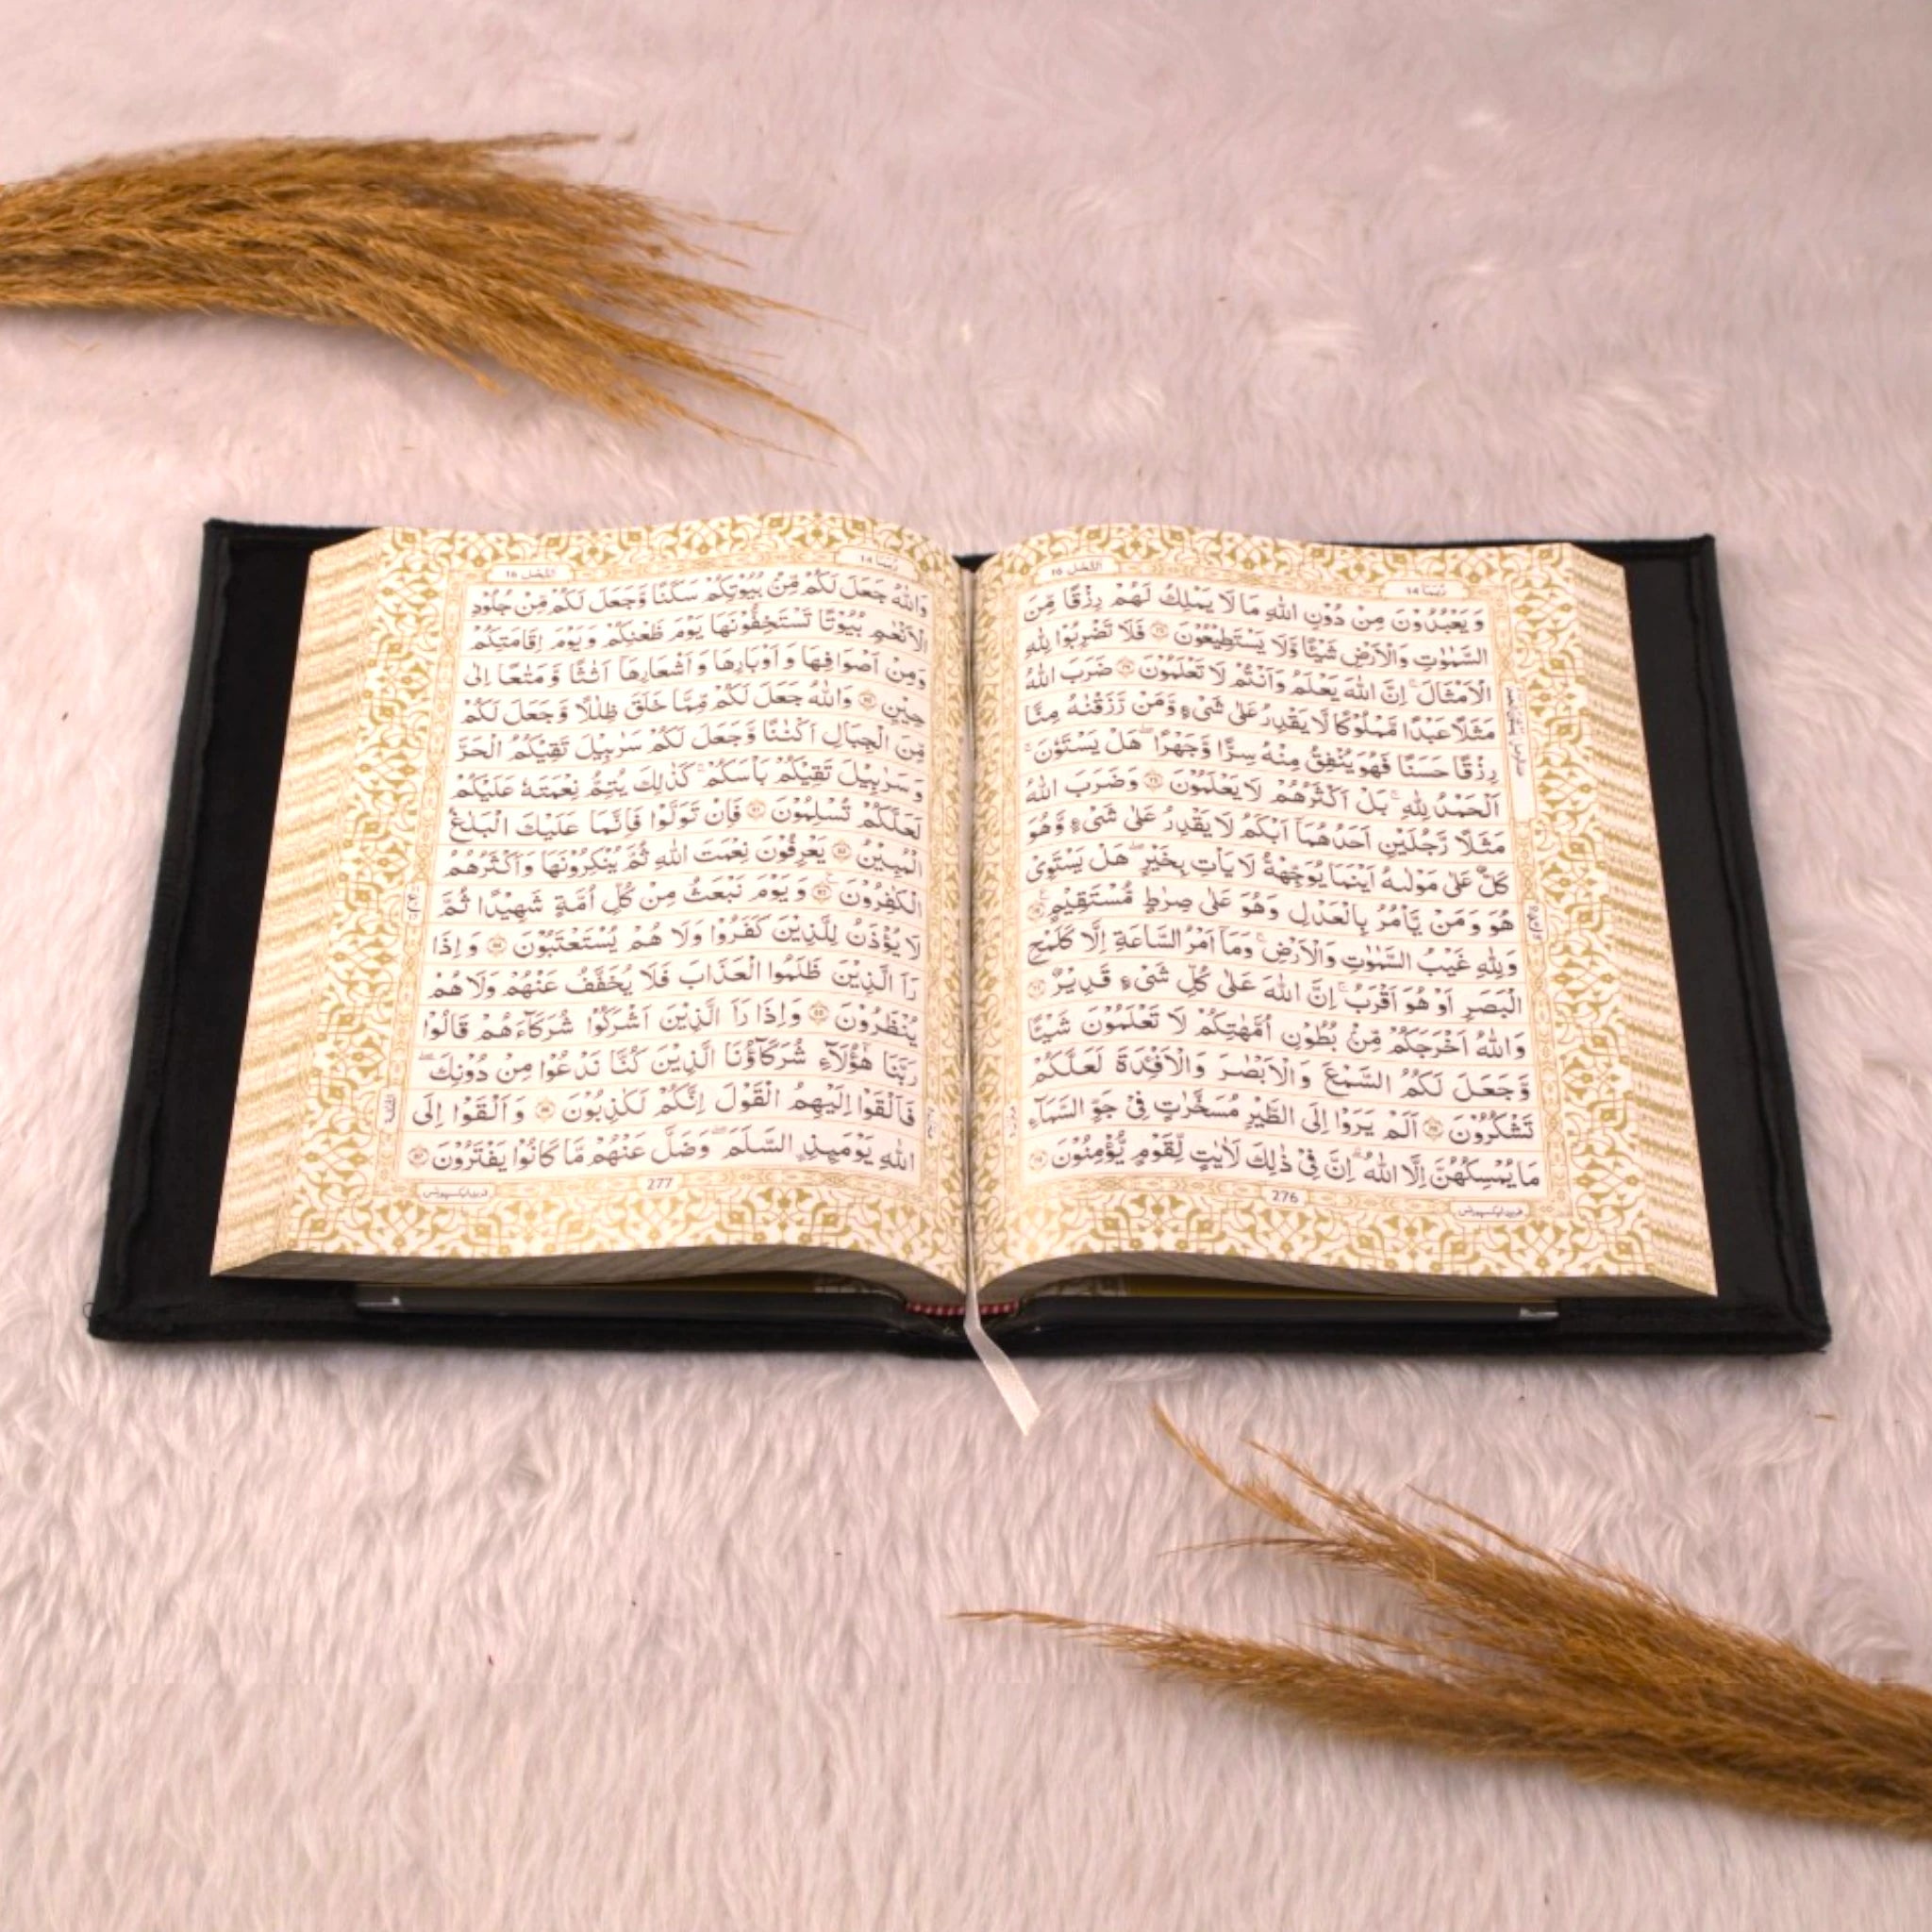 النحل 16
ربما 14
وَيَعْبُدُوْنَ مِنْ دُوْنِ اللّٰهِ مَا لَا يَمْلِكُ لَهُمْ رِزْقًا مِّنَ
السَّمٰوٰتِ وَالْاَرْضِ شَيْئًا وَّلَا يَسْتَطِيْعُوْنَ ۝ فَلَا تَضْرِبُوْا لِلّٰهِ
الْاَمْثَالَ ؕ اِنَّ اللّٰهَ يَعْلَمُ وَاَنْتُمْ لَا تَعْلَمُوْنَ ۝ ضَرَبَ اللّٰهُ
مَثَلًا عَبْدًا مَّمْلُوْكًا لَّا يَقْدِرُ عَلٰى شَىْءٍ وَّمَنْ رَّزَقْنٰهُ مِنَّا
رِزْقًا حَسَنًا فَهُوَ يُنْفِقُ مِنْهُ سِرًّا وَّجَهْرًا ؕ هَلْ يَسْتَوٗنَ ؕ
اَلْحَمْدُ لِلّٰهِ ؕ بَلْ اَكْثَرُهُمْ لَا يَعْلَمُوْنَ ۝ وَضَرَبَ اللّٰهُ
مَثَلًا رَّجُلَيْنِ اَحَدُهُمَآ اَبْكَمُ لَا يَقْدِرُ عَلٰى شَىْءٍ وَّهُوَ
كَلٌّ عَلٰى مَوْلٰىهُ اَيْنَمَا يُوَجِّهْهُّ لَا يَاْتِ بِخَيْرٍ ؕ هَلْ يَسْتَوِىْ
هُوَ وَمَنْ يَّاْمُرُ بِالْعَدْلِ وَهُوَ عَلٰى صِرٰطٍ مُّسْتَقِيْمٍ ۝
وَلِلّٰهِ غَيْبُ السَّمٰوٰتِ وَالْاَرْضِ ؕ وَمَآ اَمْرُ السَّاعَةِ اِلَّا كَلَمْحِ
الْبَصَرِ اَوْ هُوَ اَقْرَبُ ؕ اِنَّ اللّٰهَ عَلٰى كُلِّ شَىْءٍ قَدِيْرٌ ۝
وَاللّٰهُ اَخْرَجَكُمْ مِّنْۢ بُطُوْنِ اُمَّهٰتِكُمْ لَا تَعْلَمُوْنَ شَيْئًا
وَّجَعَلَ لَكُمُ السَّمْعَ وَالْاَبْصٰرَ وَالْاَفْئِدَةَ لَعَلَّكُمْ
تَشْكُرُوْنَ ۝ اَلَمْ يَرَوْا اِلَى الطَّيْرِ مُسَخَّرٰتٍ فِىْ جَوِّ السَّمَآءِ
مَا يُمْسِكُهُنَّ اِلَّا اللّٰهُ ؕ اِنَّ فِىْ ذٰلِكَ لَاٰيٰتٍ لِّقَوْمٍ يُّؤْمِنُوْنَ ۝
276
النحل 16
ربما 14
وَاللّٰهُ جَعَلَ لَكُمْ مِّنْۢ بُيُوْتِكُمْ سَكَنًا وَّجَعَلَ لَكُمْ مِّنْ جُلُوْدِ
الْاَنْعٰمِ بُيُوْتًا تَسْتَخِفُّوْنَهَا يَوْمَ ظَعْنِكُمْ وَيَوْمَ اِقَامَتِكُمْ
وَمِنْ اَصْوَافِهَا وَاَوْبَارِهَا وَاَشْعَارِهَآ اَثٰثًا وَّمَتٰعًا اِلٰى
حِيْنٍ ۝ وَاللّٰهُ جَعَلَ لَكُمْ مِّمَّا خَلَقَ ظِلٰلًا وَّجَعَلَ لَكُمْ
مِّنَ الْجِبَالِ اَكْنٰنًا وَّجَعَلَ لَكُمْ سَرٰبِيْلَ تَقِيْكُمُ الْحَرَّ
وَسَرٰبِيْلَ تَقِيْكُمْ بَاْسَكُمْ ؕ كَذٰلِكَ يُتِمُّ نِعْمَتَهٗ عَلَيْكُمْ
لَعَلَّكُمْ تُسْلِمُوْنَ ۝ فَاِنْ تَوَلَّوْا فَاِنَّمَا عَلَيْكَ الْبَلٰغُ
الْمُبِيْنُ ۝ يَعْرِفُوْنَ نِعْمَتَ اللّٰهِ ثُمَّ يُنْكِرُوْنَهَا وَاَكْثَرُهُمُ
الْكٰفِرُوْنَ ۝ وَيَوْمَ نَبْعَثُ مِنْ كُلِّ اُمَّةٍ شَهِيْدًا ثُمَّ
لَا يُؤْذَنُ لِلَّذِيْنَ كَفَرُوْا وَلَا هُمْ يُسْتَعْتَبُوْنَ ۝ وَاِذَا
رَاَ الَّذِيْنَ ظَلَمُوا الْعَذَابَ فَلَا يُخَفَّفُ عَنْهُمْ وَلَا هُمْ
يُنْظَرُوْنَ ۝ وَاِذَا رَاَ الَّذِيْنَ اَشْرَكُوْا شُرَكَآءَهُمْ قَالُوْا
رَبَّنَا هٰٓؤُلَآءِ شُرَكَآؤُنَا الَّذِيْنَ كُنَّا نَدْعُوْا مِنْ دُوْنِكَ ۚ
فَاَلْقَوْا اِلَيْهِمُ الْقَوْلَ اِنَّكُمْ لَكٰذِبُوْنَ ۝ وَاَلْقَوْا اِلَى
اللّٰهِ يَوْمَىِٕذِ ۨالسَّلَمَ وَضَلَّ عَنْهُمْ مَّا كَانُوْا يَفْتَرُوْنَ ۝
277